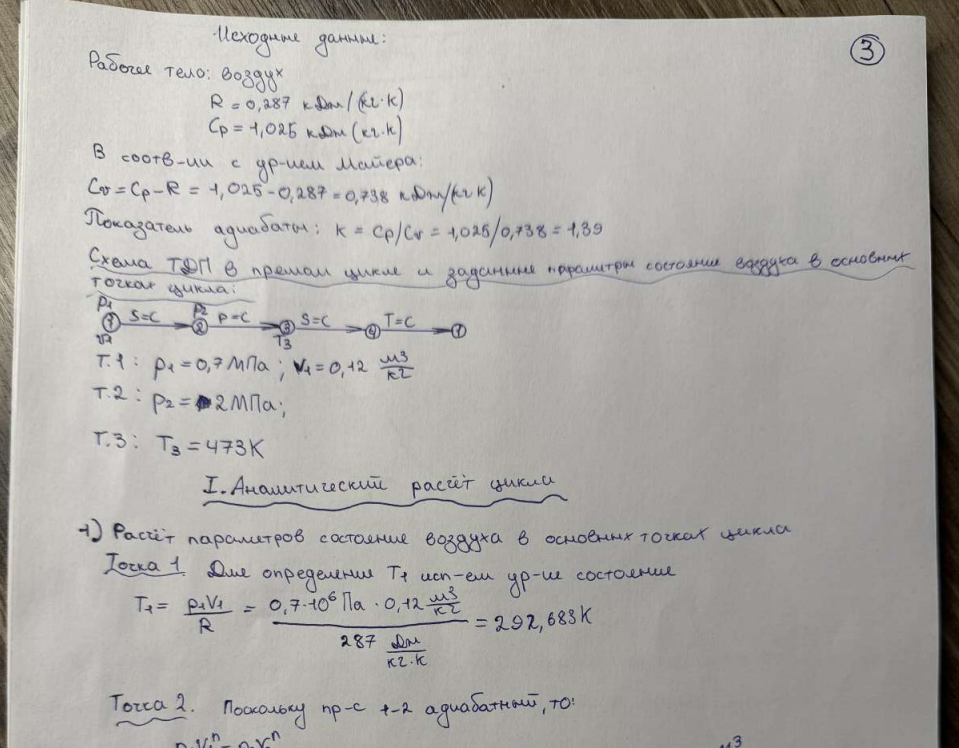 Исходные данные:
3
Рабочее тело: воздух
R = 0,287 кДж/(кг·К)
Cp = 1,025 кДж(кг·К)
В соотв-ии с ур-ием Майера:
Cv = Cp – R = 1,025 - 0,287 = 0,738 кДж/(кг К)
Показатель адиабаты: к = Cp/Cv = 1,025/0,738 = 1,39
Схема ТДП в прямом цикле и заданные параметры состояние воздуха в основных
точках цикла:
p1 p2
1 S=C 2 P=C 3 S=C 4 T=C 1
V1 T3
Т.1: p1 = 0,7 МПа; V1 = 0,12 м3/кг
Т.2: p2 = 2МПа;
Т.3: T3 = 473К
I. Аналитический расчёт цикла
1) Расчёт параметров состояние воздуха в основных точках цикла
Точка 1. Для определение T1 исп-ем ур-ие состояние
T1 = p1V1/R = 0,7·10⁶ Па · 0,12 м3/кг / 287 Дж/кг·К = 292,683К
Точка 2. Поскольку пр-с 1-2 адиабатный, то: